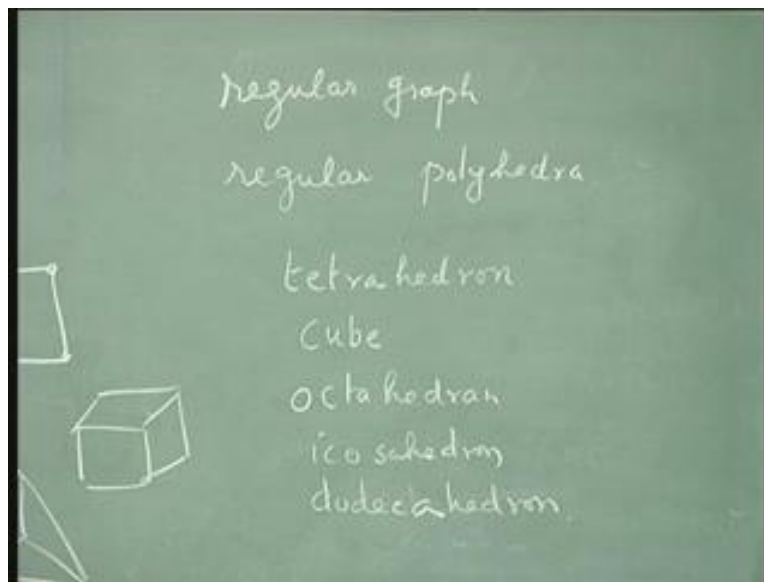 regular graph
regular polyhedra
tetrahedron
cube
octahedran
icosahedron
dudecahedron